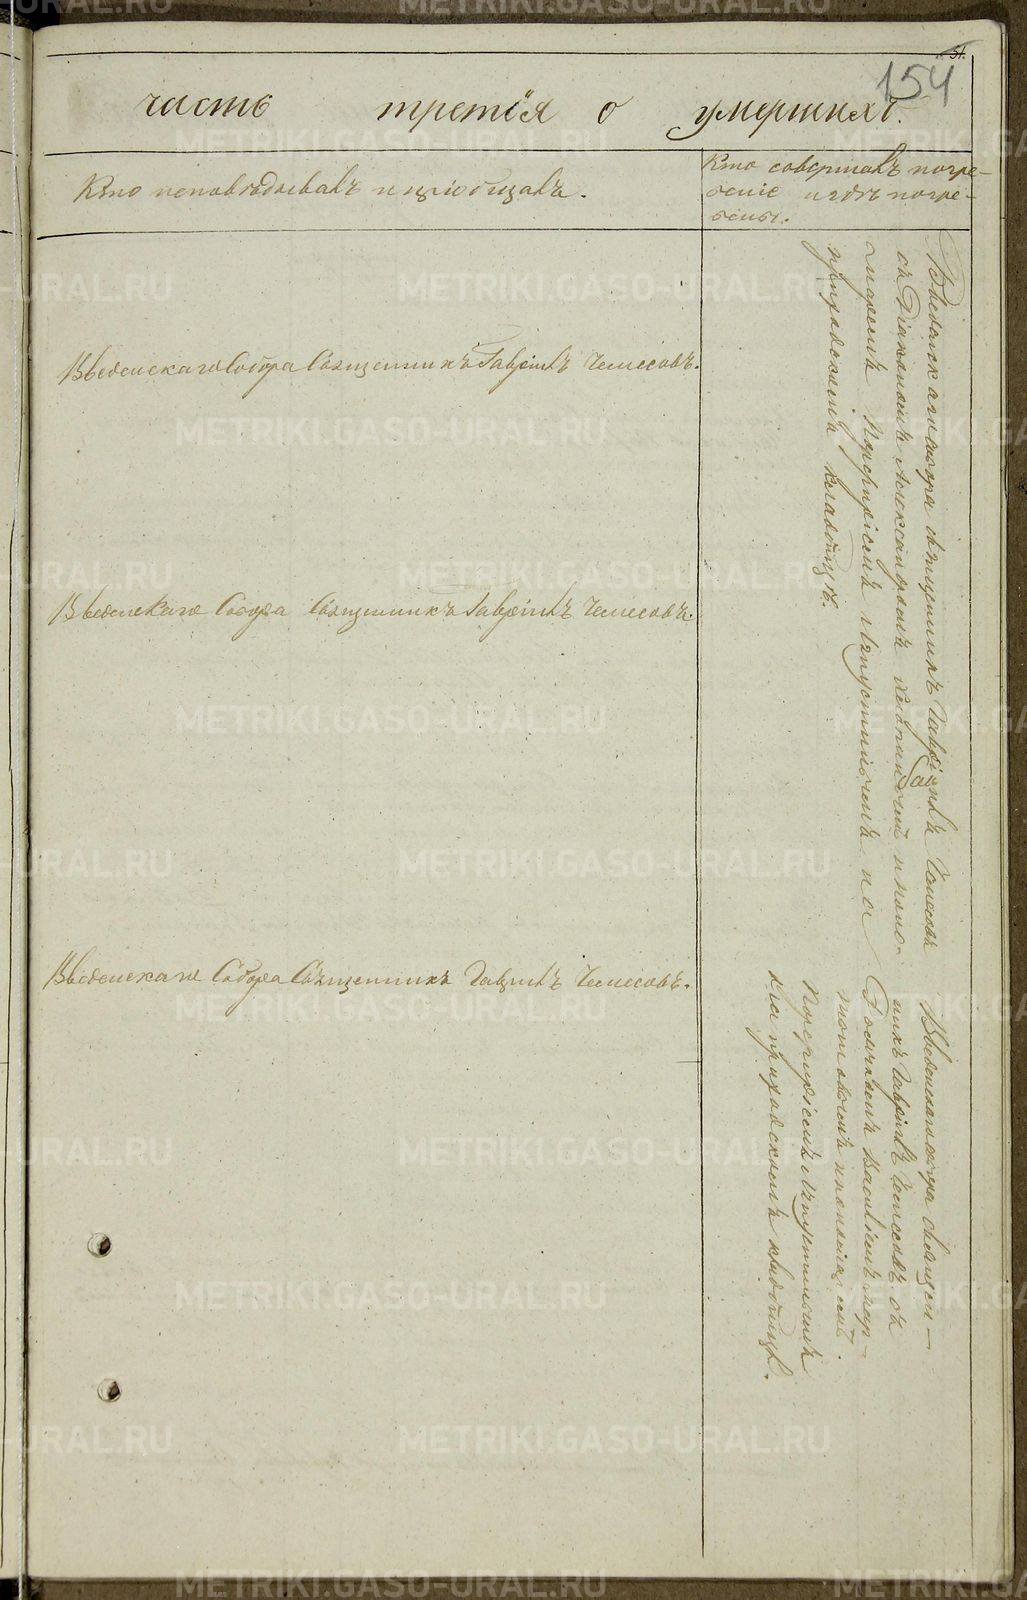 51.
154
часть третія о умершихъ.
Кто исповѣдывалъ и пріобщалъ.
Кто совершалъ погре-
беніе и гдѣ погре-
бены.
Введенскаго Собора Священникъ Гавріилъ Чемесовъ.
Введенскаго Собора Священникъ Гавріилъ Чемесовъ.
Введенскаго Собора Священникъ Гавріилъ Чемесовъ.
Введенскаго собора священникъ Гавріилъ Чемесовъ
съ Діакономъ Александромъ и поно-
маремъ Порфиріемъ на
приходскомъ кладбищѣ.
Введенскаго собора священ-
никъ Гавріилъ Чемесовъ съ
Дьячкомъ Василіемъ
и пономаремъ
Порфиріемъ
на приходскомъ кладбищѣ.
METRIKI.GASO-URAL.RU